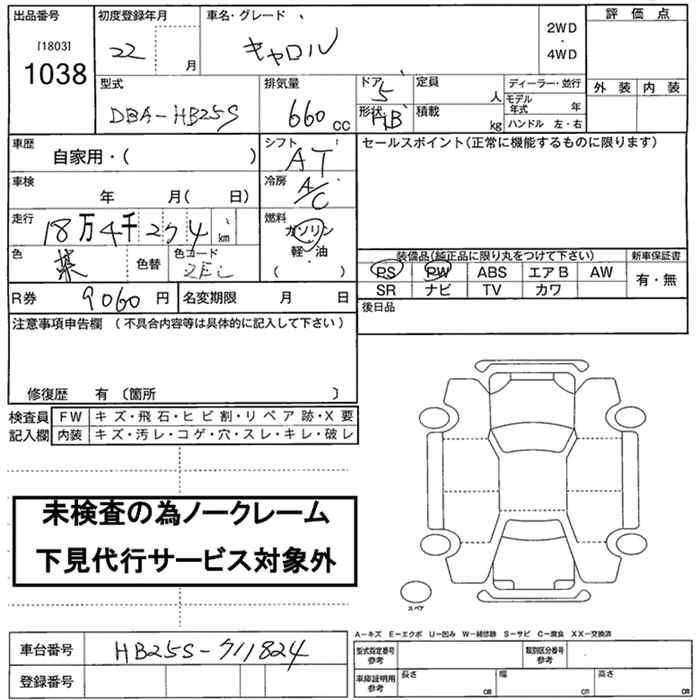 出品番号 初度登録年月 車名・グレード 評価点
[1803] 22 月 キャロル 2WD・4WD
1038
型式 排気量 ドア 定員 ディーラー・並行 外装 内装
DBA-HB25S 660cc 5 人 モデル年式 年
形状 HB 積載 kg ハンドル 左・右
車歴 シフト セールスポイント(正常に機能するものに限ります)
自家用・( ) AT
車検 冷房
年 月( 日) A/C
走行 燃料
18万4千274 km ガソリン
軽・油
( )
色 色替 色コード 装備品(純正品に限り丸をつけて下さい) 新車保証書
ZEC PS PW ABS エアB AW 有・無
SR ナビ TV カワ
R券 9060円 名変期限 月 日 後日品
注意事項申告欄 (不具合内容等は具体的に記入して下さい)
修復歴 有 〔箇所 〕
検査員 FW キズ・飛石・ヒビ割・リペア跡・X要
記入欄 内装 キズ・汚レ・コゲ・穴・スレ・キレ・破レ
未検査の為ノークレーム
下見代行サービス対象外
スペア
A-キズ E-エクボ U-凹み W-補修跡 S-サビ C-腐食 XX-交換済
車台番号 HB25S-711824 型式指定番号 参考 類別区分番号 参考
登録番号 車庫証明用 参考 長さ cm 幅 cm 高さ cm